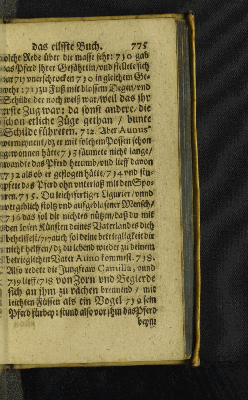 das eilffte Buch. 775
solche Rede über die masse sehr: 730 gab
das Pferd ihrer Gefährtin/ und stellete sich
dar 731 unerschrocken 730 in gleichem Ge-
wehr: 721 zu Fuß mit blossem Degen/ und
Schilde der noch weiß war/ weil das ihr
erste Zug war: da sonst andere/ die
schon etliche Züge gethan / bunte
Schilde führeten. 712. Aber Aunus
vermeinent/ dz er mit solchem Possen schon
gewonnen hätte 713 säumete nicht lange/
wandte das Pferd herumb/ und lieff davon
732 als ob er geflogen hätte/ 734 und stu-
pfete das Pferd ohn unterlaß mit den Spo-
ren. 715. Du leichtfertiger Ligurier/ unnd
vergeblich stoltz und auffgeblasener Mensch/
716 das sol dir nichts nützen/ daß du mit
den losen Künsten deines Vaterlandes dich
behelffest/ 717 auch sol deine betrieglichkeit dir
nicht helffen/ dz du lebend wieder zu deinem
betrieglichen Vater Auno kommest. 738.
Also redete die Jungfraw Camilla, unnd
719 lieff 718 von Zorn und Begierde
sich an jhm zu rächen brennend / mit
leichten Füssen als ein Vogel 719 sein
Pferd fürbey: stund also vor ihm das Pferd
beym